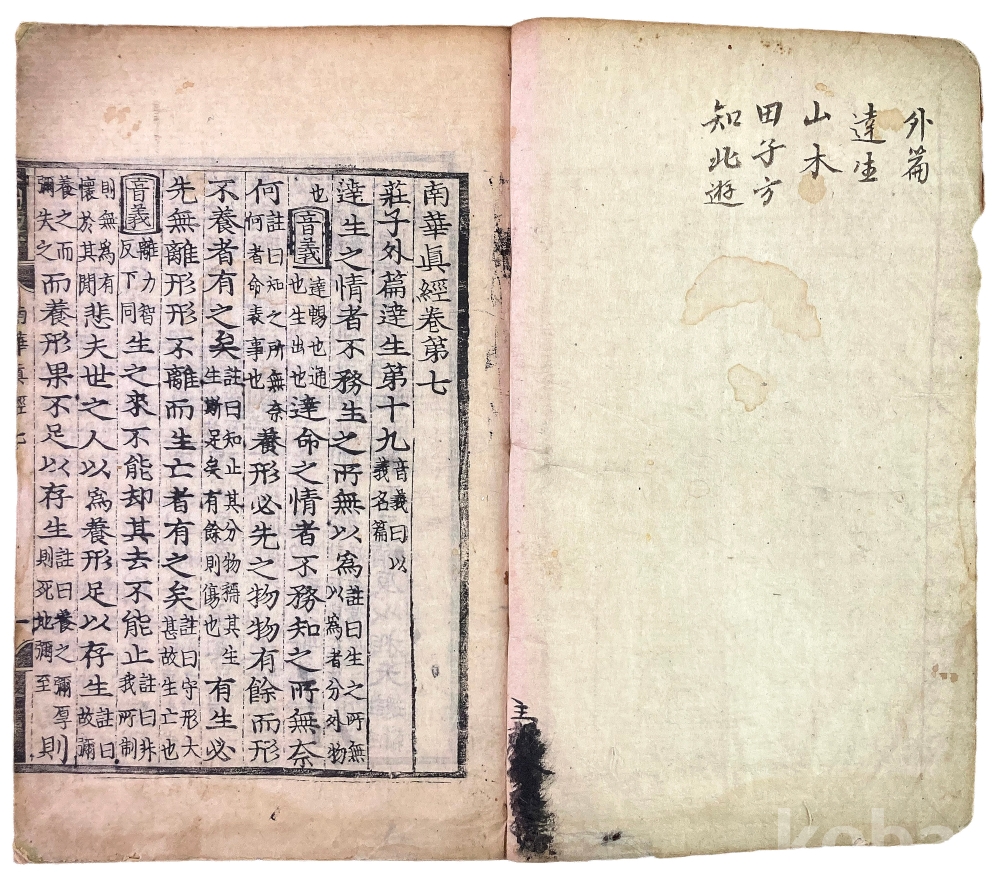 外篇
達生
山木
田子方
知北遊
南華眞經卷第七
莊子外篇逹生第十九音義曰以義名篇
逹生之情者不務生之所無以爲註曰生之所無以爲者分外物
也音義逹暢也通也生出也逹命之情者不務知之所無奈
何註曰知之所無奈何者命表事也養形必先之物物有餘而形
不養者有之矣註曰知止其分物稱其生生斯足矣有餘則傷也有生必
先無離形形不離而生亡者有之矣註曰守形大甚故生亡也
音義離力智反下同生之來不能却其去不能止註曰非我所制
則無爲有懷於其間悲夫世之人以爲養形足以存生註曰故彌
養之而彌失之而養形果不足以存生註曰養之彌厚則死地彌至則
南華眞經七 一
koba